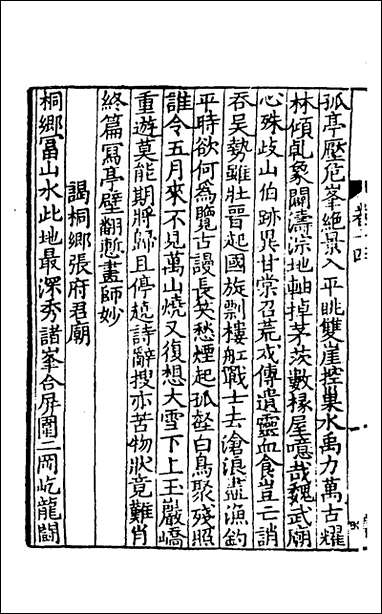 孤亭壓危峯絶景入平眺雙崖控巢水禹力萬古耀
林傾亂象闢濤淙地軸掉茅茨數椽屋噫哉魏武廟
心殊歧山伯跡異甘棠召荒戎傳遺靈血食豈亡誚
吞吳勢雖壯晉起國旋剽樓舡戰士去滄浪盡漁釣
平時欲何為覽古謾長笑愁煙起孤壑白鳥聚殘照
誰令五月來不見萬山燒又復想大雪下上玉巖嶠
重遊莫能期將歸且停遶詩辭搜亦苦物狀竟難肖
終篇寫亭壁翻慙畫師妙
謁桐鄉張府君廟
桐鄉冨山水此地最深秀諸峯合屏圍二岡屹龍鬪